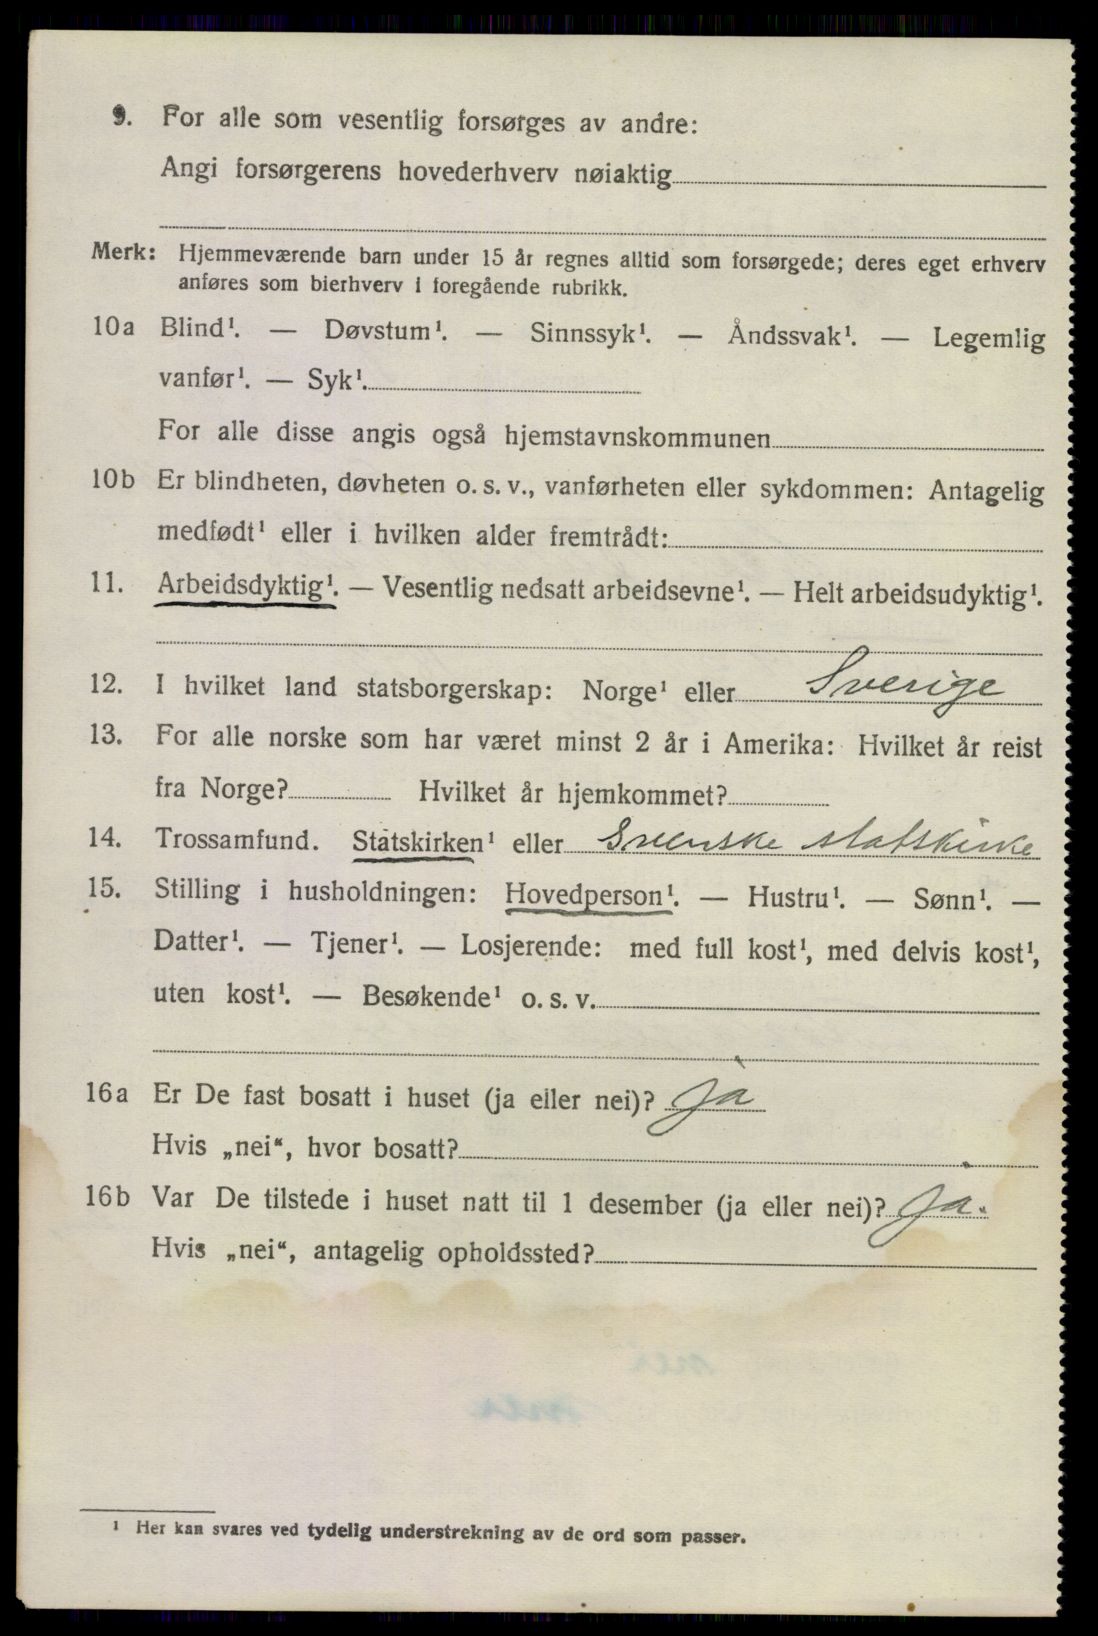 9. For alle som vesentlig forsørges av andre:
Angi forsørgerens hovederhverv nøiaktig
Merk: Hjemmeværende barn under 15 år regnes alltid som forsørgede; deres eget erhverv
anføres som bierhverv i foregående rubrikk.
10a Blind¹. — Døvstum¹. — Sinnssyk¹. — Åndssvak¹. — Legemlig
vanfør¹. — Syk¹.
For alle disse angis også hjemstavnskommunen
10b Er blindheten, døvheten o. s. v., vanførheten eller sykdommen: Antagelig
medfødt¹ eller i hvilken alder fremtrådt:
11. Arbeidsdyktig¹. — Vesentlig nedsatt arbeidsevne¹. — Helt arbeidsudyktig¹.
12. I hvilket land statsborgerskap: Norge¹ eller Sverige
13. For alle norske som har været minst 2 år i Amerika: Hvilket år reist
fra Norge? Hvilket år hjemkommet?
14. Trossamfund. Statskirken¹ eller Svenske statskirke
15. Stilling i husholdningen: Hovedperson¹. — Hustru¹. — Sønn¹. —
Datter¹. — Tjener¹. — Losjerende: med full kost¹, med delvis kost¹,
uten kost¹. — Besøkende¹ o. s. v.
16a Er De fast bosatt i huset (ja eller nei)? ja
Hvis „nei“, hvor bosatt?
16b Var De tilstede i huset natt til 1 desember (ja eller nei)? ja.
Hvis „nei“, antagelig opholdssted?
¹ Her kan svares ved tydelig understrekning av de ord som passer.